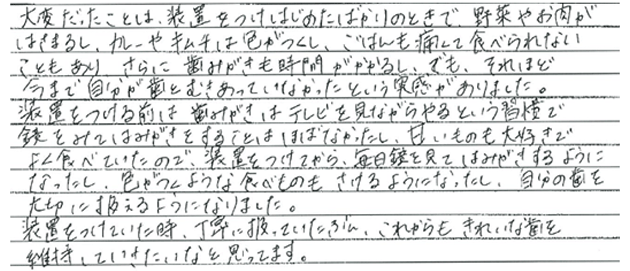 大変だったことは、装置をつけはじめたばかりのときで、野菜やお肉が
はさまるし、カレーやキムチは色がつくし、ごはんも痛くて食べられない
こともあり さらに 歯みがきも時間がかかるし、でも、それほど
今まで自分が歯とむきあっていなかったという実感がありました。
装置をつける前は 歯みがきはテレビを見ながらやるという習慣で
鏡をみてはみがきをすることはほぼなかったし、甘いものも大好きで
よく食べていたので、装置をつけてから、毎日鏡を見てはみがきするように
なったし、色がつくような食べものも さけるようになったし、自分の歯を
大切に扱えるようになりました。
装置をつけていた時、丁寧に扱っていたぶん、これからもきれいな歯を
維持していきたいなと思ってます。